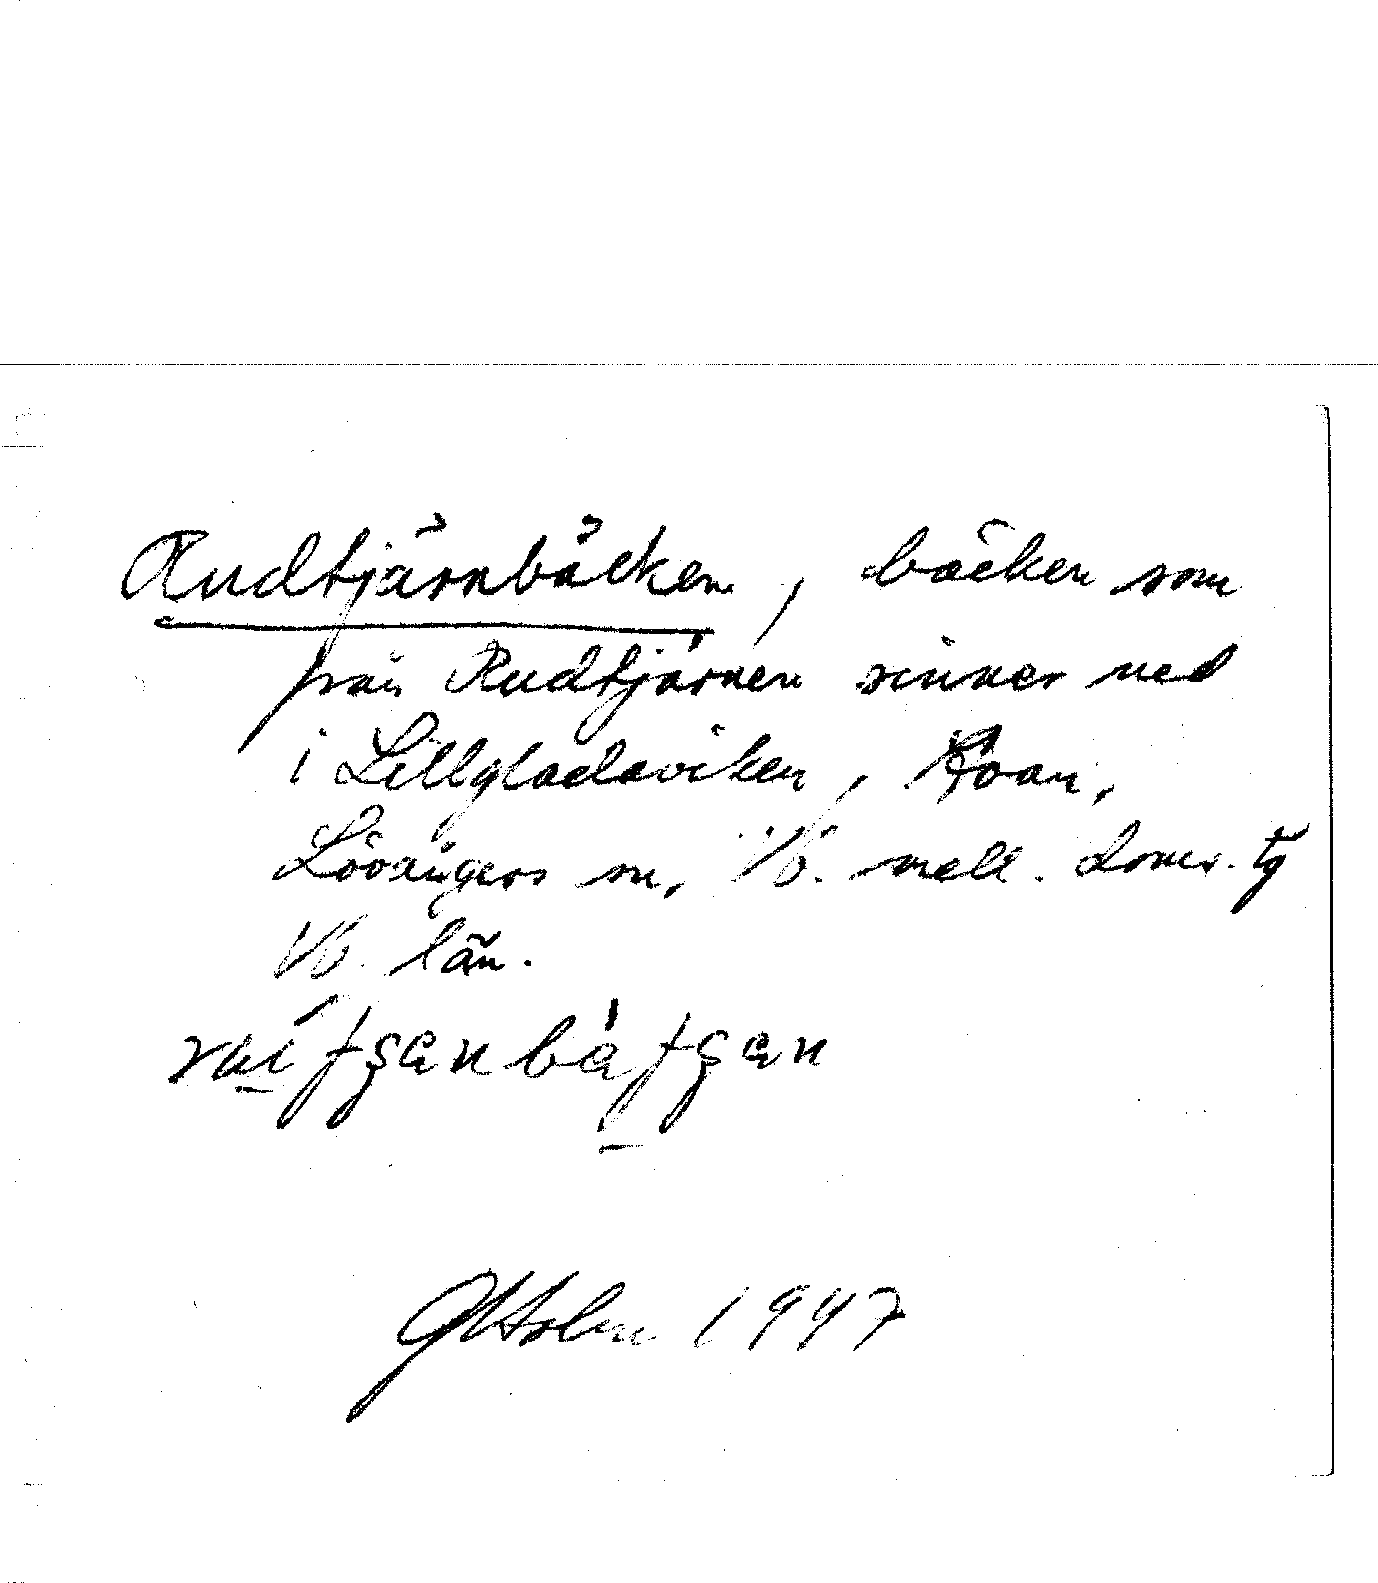 Rudtjärnbäcken, bäcken som
från Rudtjärnen rinner ned
i Lillgladaviken, Roan,
Lövångers sn, Vb. mell. doms. tg
Vb. län.
1947